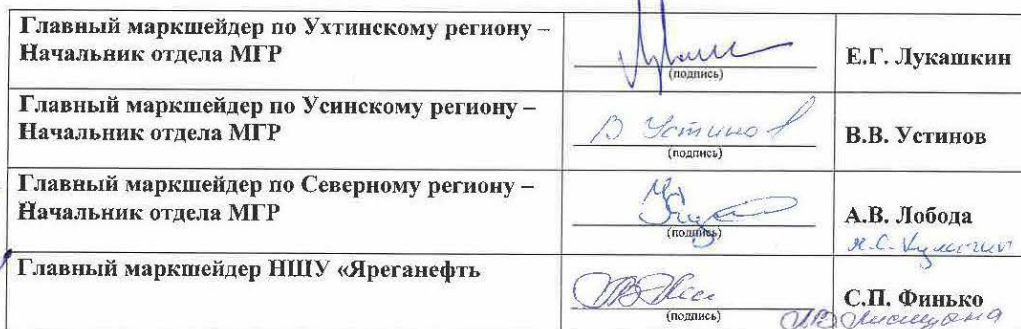 Главный маркшейдер по Ухтинскому региону –
Начальник отдела МГР
(подпись)
Е.Г. Лукашкин
Главный маркшейдер по Усинскому региону –
Начальник отдела МГР
В Устинов
(подпись)
В.В. Устинов
Главный маркшейдер по Северному региону –
Начальник отдела МГР
(подпись)
А.В. Лобода
Главный маркшейдер НШУ «Яреганефть
(подпись)
С.П. Финько